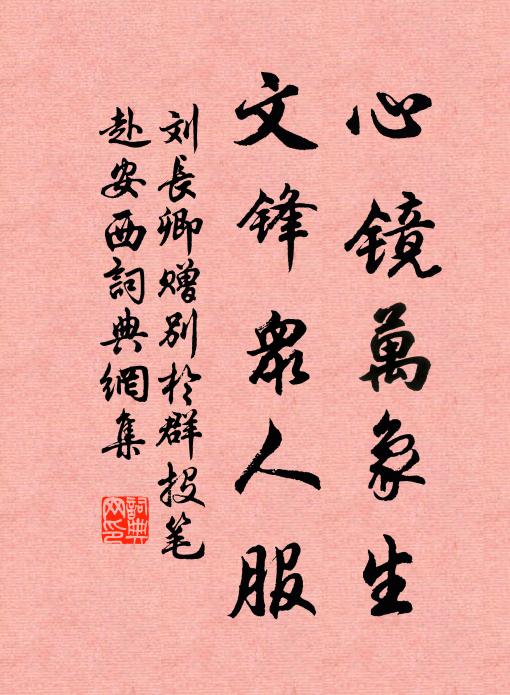 心镜萬象生
文锋眾人服
刘長卿赠别於群投笔
赴安西詞典網集
詞典网印